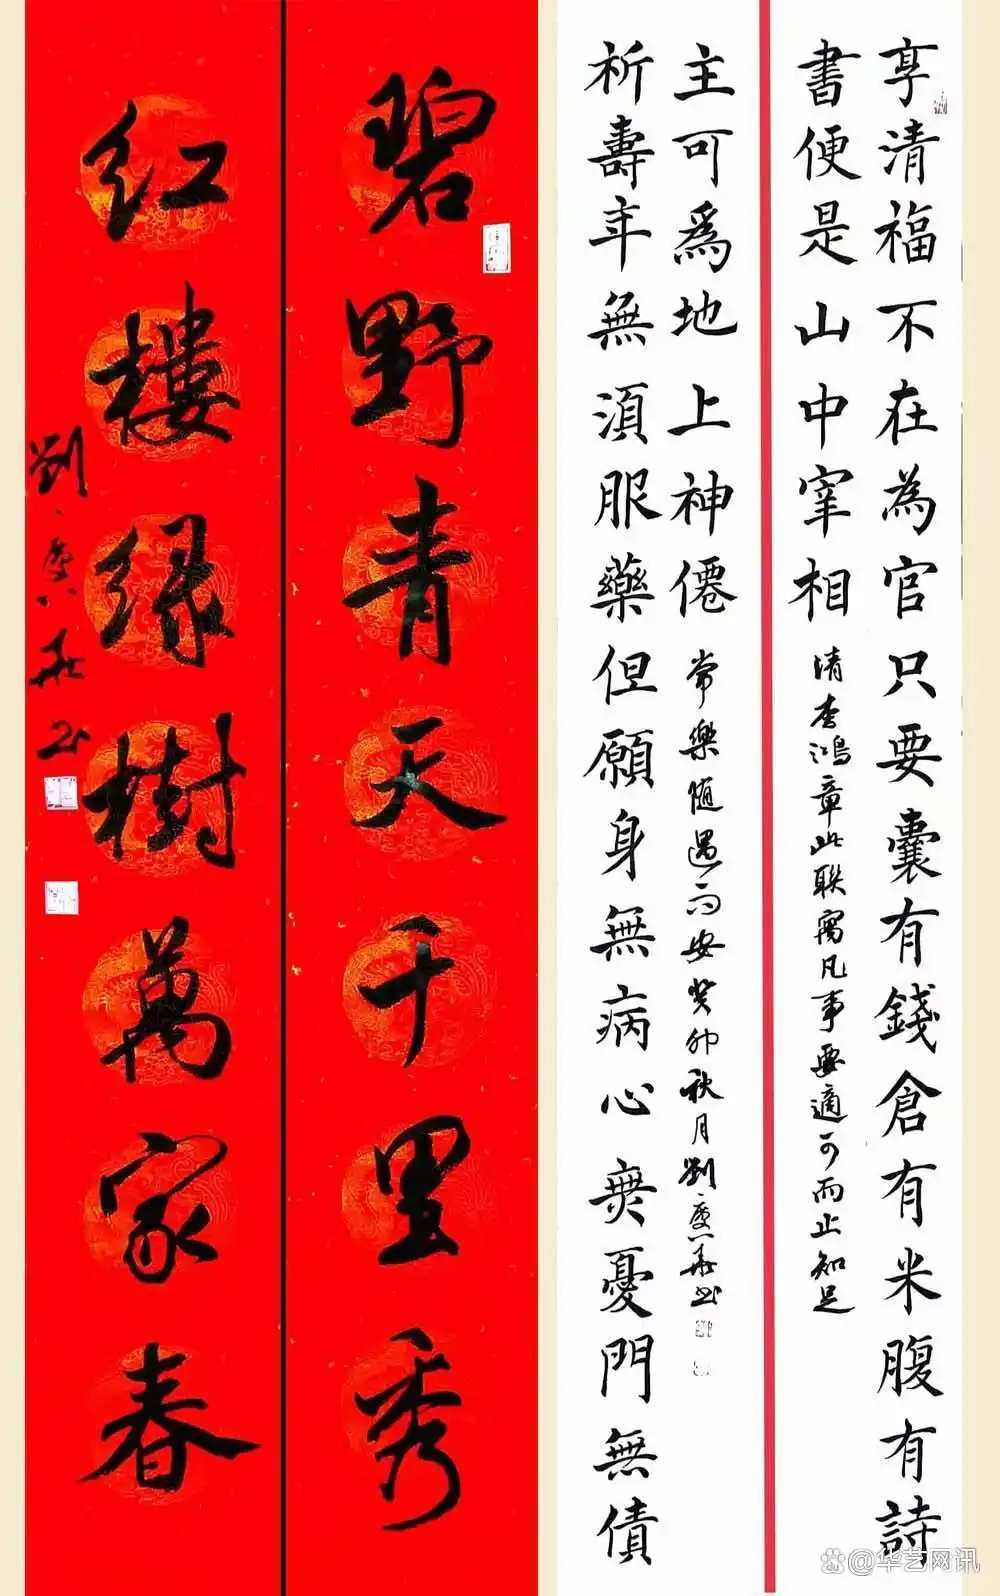 享清福不在為官只要囊有錢倉有米腹有詩
書便是山中宰相
清李鴻章此联寓凡事要適可而止知足
祈壽年無湏服藥但願身無病心無憂門無債
主可爲地上神僊
常樂随遇而安癸卯秋月劉慶華书
碧野青天千里秀
红樓绿樹萬家春
劉慶華书
@华艺网讯